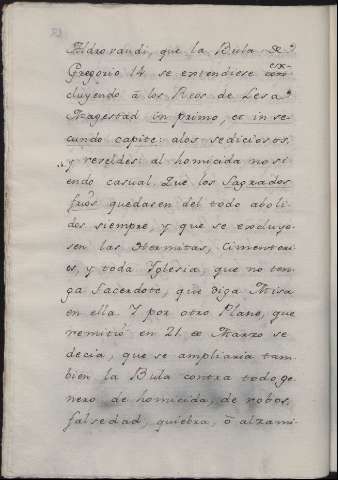 Aldrovandi, que la Bula de
Gregorio 14 se extendiese ex-
cluyendo â los Reos de Lesa
Magestad in primo, et in se-
cundo capite: alos sediciosos,
y reveldes: al homicida no si
endo casual. Que los Sagrados
frios quedasen del todo aboli
dos siempre, y que se excluye-
sen las Hermitas, Cimenteri
os, y toda Yglesia, que no ten-
ga Sacerdote, que diga Misa
en ella Y por otro Plano, que
remitiò en 21 de Marzo se
decia, que se ampliaria tam-
bien la Bula contra todo ge
nero de homicida, de robos,
falsedad, quiebra, ô alzami-